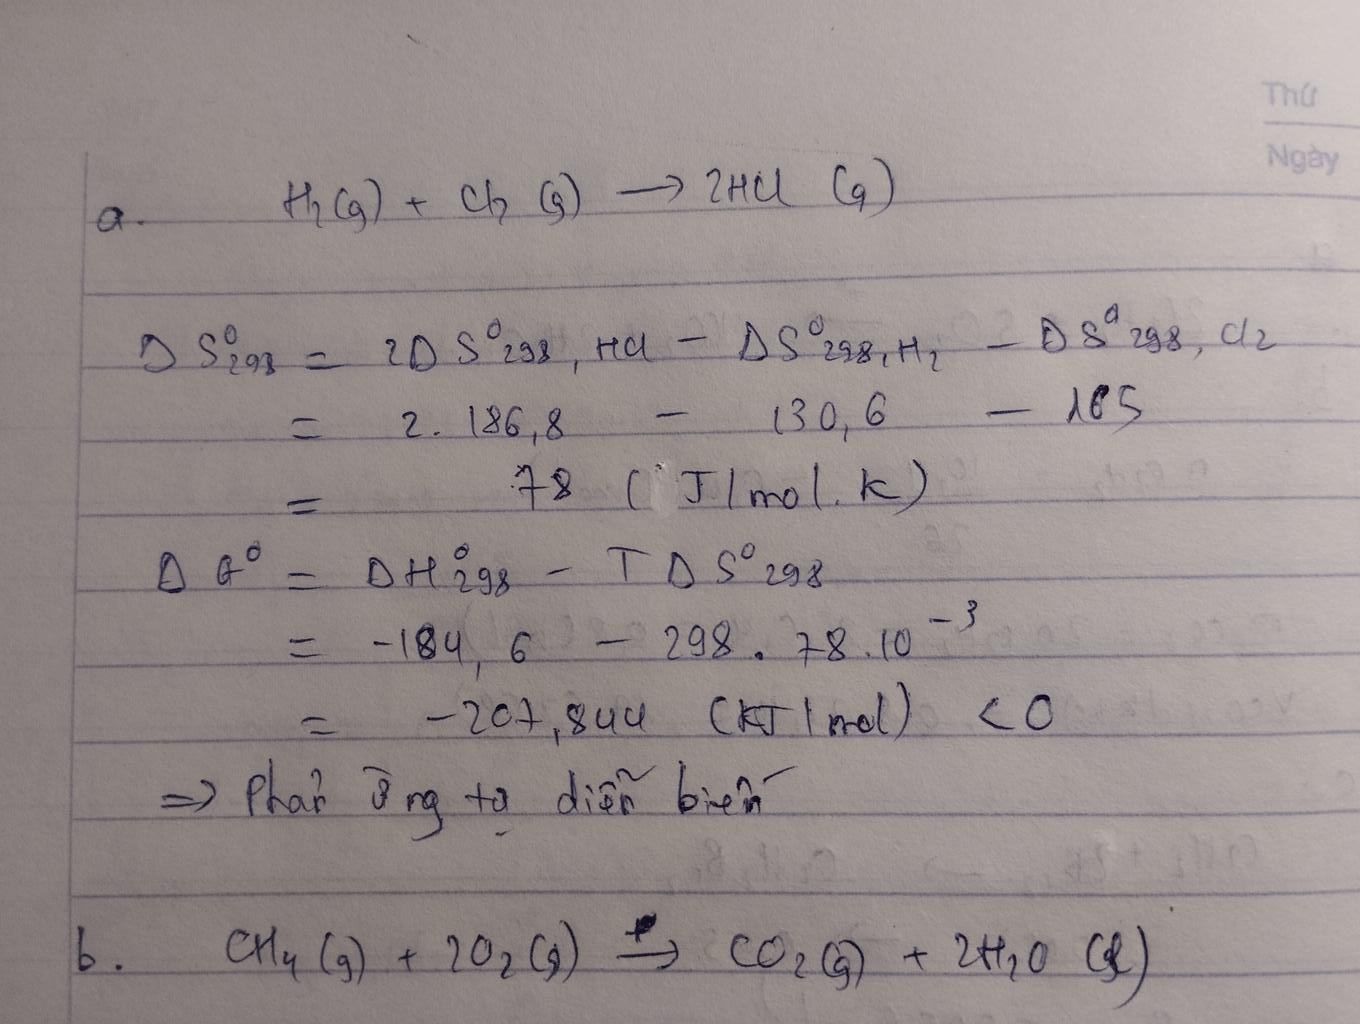 Thứ
Ngày
a. H₂(g) + Cl₂ (g) → 2HCl (g)
Δ S⁰₂₉₈ = 2Δ S⁰₂₉₈, HCl − ΔS⁰₂₉₈, H₂ − ΔS⁰ ₂₉₈, Cl₂
= 2. 186,8 − 130,6 − 165
= 78 ( J/mol. K)
Δ G⁰ = ΔH⁰₂₉₈ − T Δ S⁰ ₂₉₈
= -184, 6 − 298. 78.10⁻³
= -207,844 (KJ/mol) < 0
⇒ Phản ứng tự diễn biến
b. CH₄ (g) + 2O₂ (g) → CO₂ (g) + 2H₂O (l)